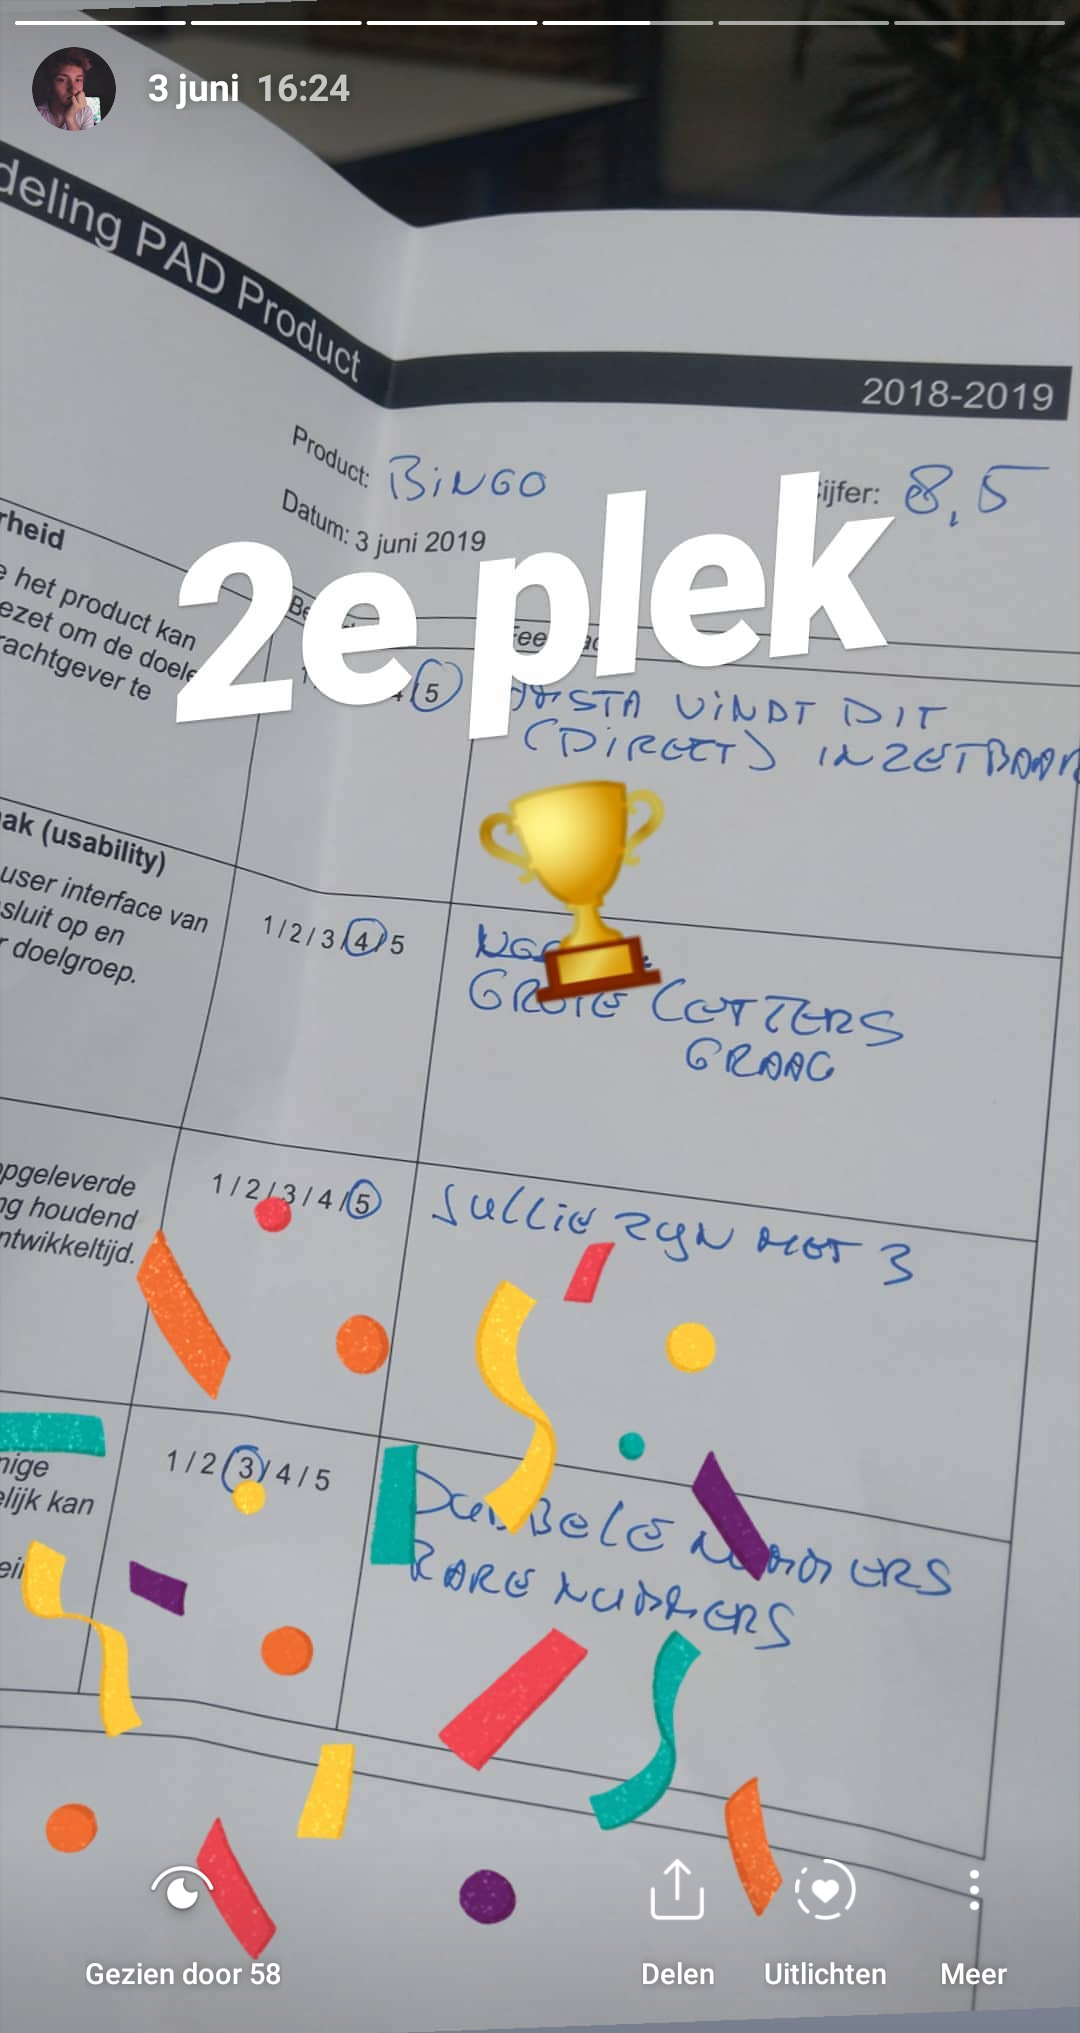 3 juni 16:24
deling PAD Product
2018-2019
Product: BINGO
Cijfer: 8,5
Datum: 3 juni 2019
2e plek
rheid
e het product kan
ezet om de doele
rachtgever te
4/5
VINDT DIT
(DIRECT) INZETBAAR
ak (usability)
user interface van
sluit op en
r doelgroep.
1/2/3/4/5
GROTE LETTERS
GRAAG
opgeleverde
ng houdend
ntwikkeltijd.
1/2/3/4/5
JULLIE ZIJN MET 3
nige
elijk kan
1/2/3/4/5
DUBBELE NUMMERS
RARE NUMMERS
Gezien door 58
Delen
Uitlichten
Meer